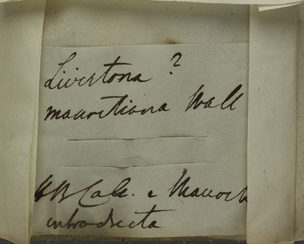 Livistona ?
mauritiana Wall
HB Calc. e Maurit
introducta